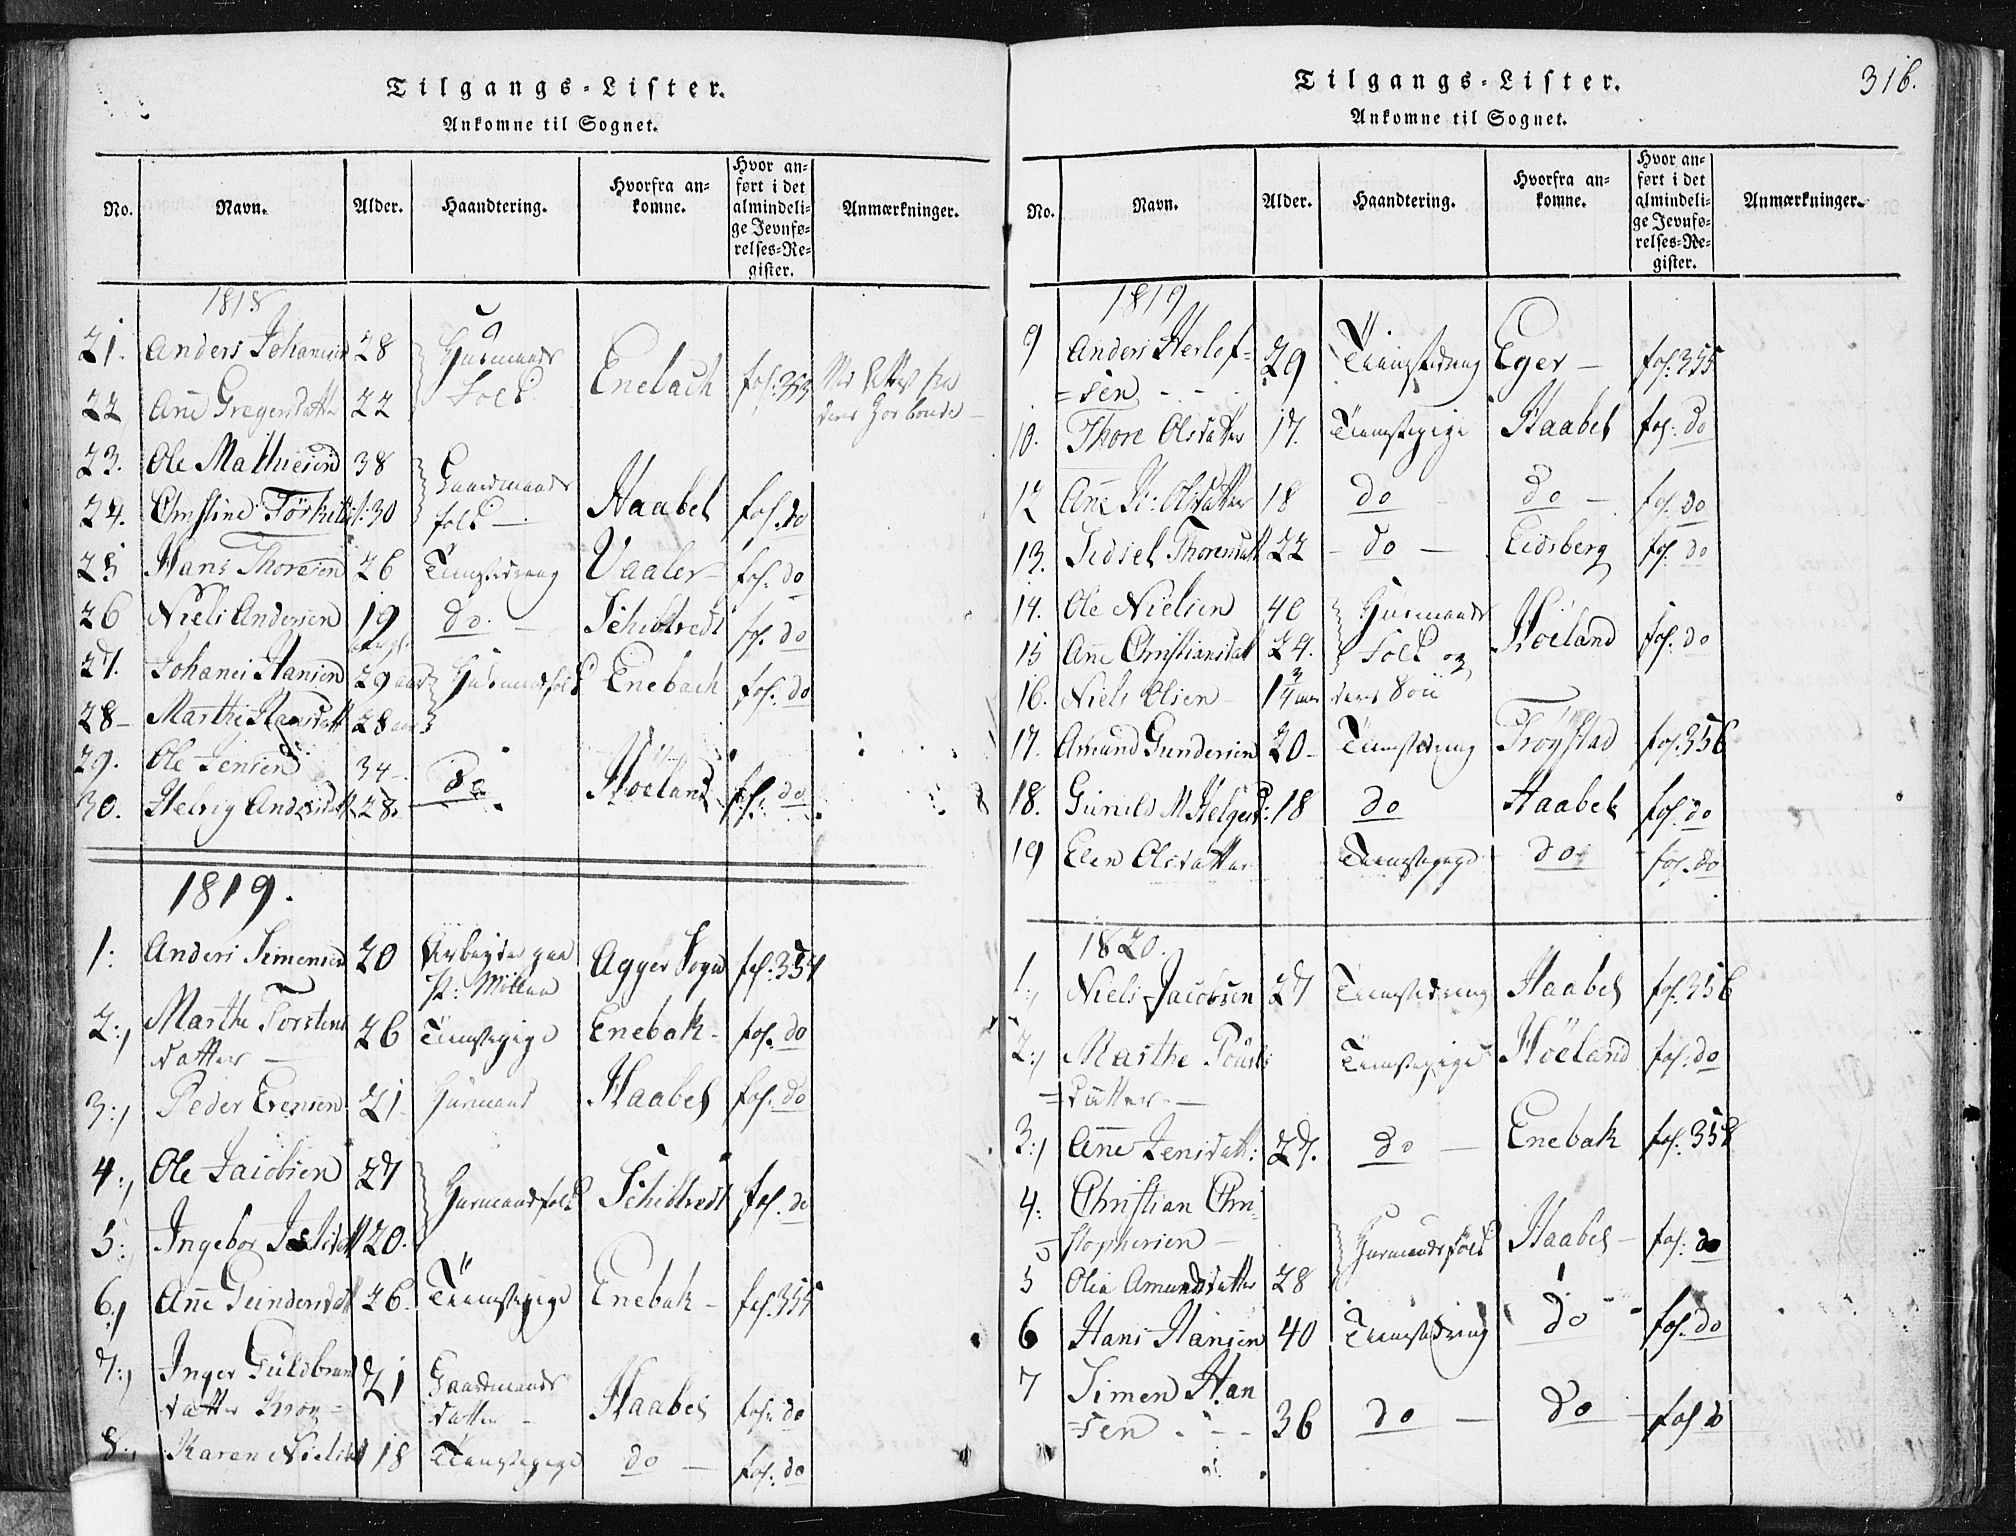 Tilgangs-Lister.
Ankomne til Sognet.
No. Navn. Alder. Haandtering. Hvorfra ankomne. Hvor anført i det almindelige Jevnførelses-Register. Anmærkninger.
1818
21. Anders Johannesen 28 Huusmands Folk Enebach fol. 353
22 Anne Gregersdatter 22
23. Ole Mathiesen 38 Gaardmands folk Haabel fol. do
24. Christine Törkild: 30
25 Hans Thoresen 26 Tienistedreng Vaaler fol. do
26 Niels Andersen 19 do Schibtvedt fol. do
27. Johanes Hansen 29 aar Huusmandsfolk Enebach fol. do
28 Marthe Hansdatt 28 aar
29. Ole Jensen 34 do Höeland fol. do
30. Helvig Andersdatt 28.
1819.
1: Anders Simensen 20 Arbeyder paa Agger Sogn fol. 354
2:, Marthe Torstens
datter 26 Tienistepige Enebak fol. do
3:, Peder Evensen 21 Huusmand Haabel fol. do
4:, Ole Jacobsen 27 Huusmandsfolk Schibtvedt fol. do
5:, Ingebor 20.
6:, Anne Gundersdatt 26. Tienistepige Enebak fol. 355
7:, Inger Guldbrands
datter Krog 21 Gaardmands datter Haabel fol. do
8:, Karen Nielsd 18 Tienistepige do fol. do
Tilgangs-Lister.
Ankomne til Sognet.
316.
No. Navn. Alder. Haandtering. Hvorfra ankomne. Hvor anført i det almindelige Jevnførelses-Register. Anmærkninger.
1819
9 Anders Herlof=
=sen 29 Tienistedreng Eger fol. 355
10. Thore Olsdatter 17. Tienistepige Haabel fol. do
12 Anne K: Olsdatter 18 do do fol. do
13. Sidsel Thoresdatt 22 do Eidsberg fol. do
14. Ole Nielsen 40 Huusmands Folk og Höeland fol. do
15 Anne Christiansdatt 24.
16. Niels Olsen 1 3/4 aar deres Sön
17. Amund Gundersen 20 Tienistedreng Tröystad fol. 356
18. Gunild M. Helgesd: 18 do Haabel fol. do
19 Elen Olsdatter Tienistepige do fol. do
1820.
1:, Niels Jacobsen 27 Tienistedreng Haabel fol. 356
2:, Marthe Pouls
=datter Tienistepige Höeland fol. do
3:, Anne Jensdatt: 27. do Enebak fol. 357
4: Christian Chri
=stophersen Huusmandsfolk Haabel fol. do
5 Olia Amundsdatter 28
6 Hans Hansen 40 Tienistedreng do fol. do
7 Simen Han
=sen 36 do do fol do